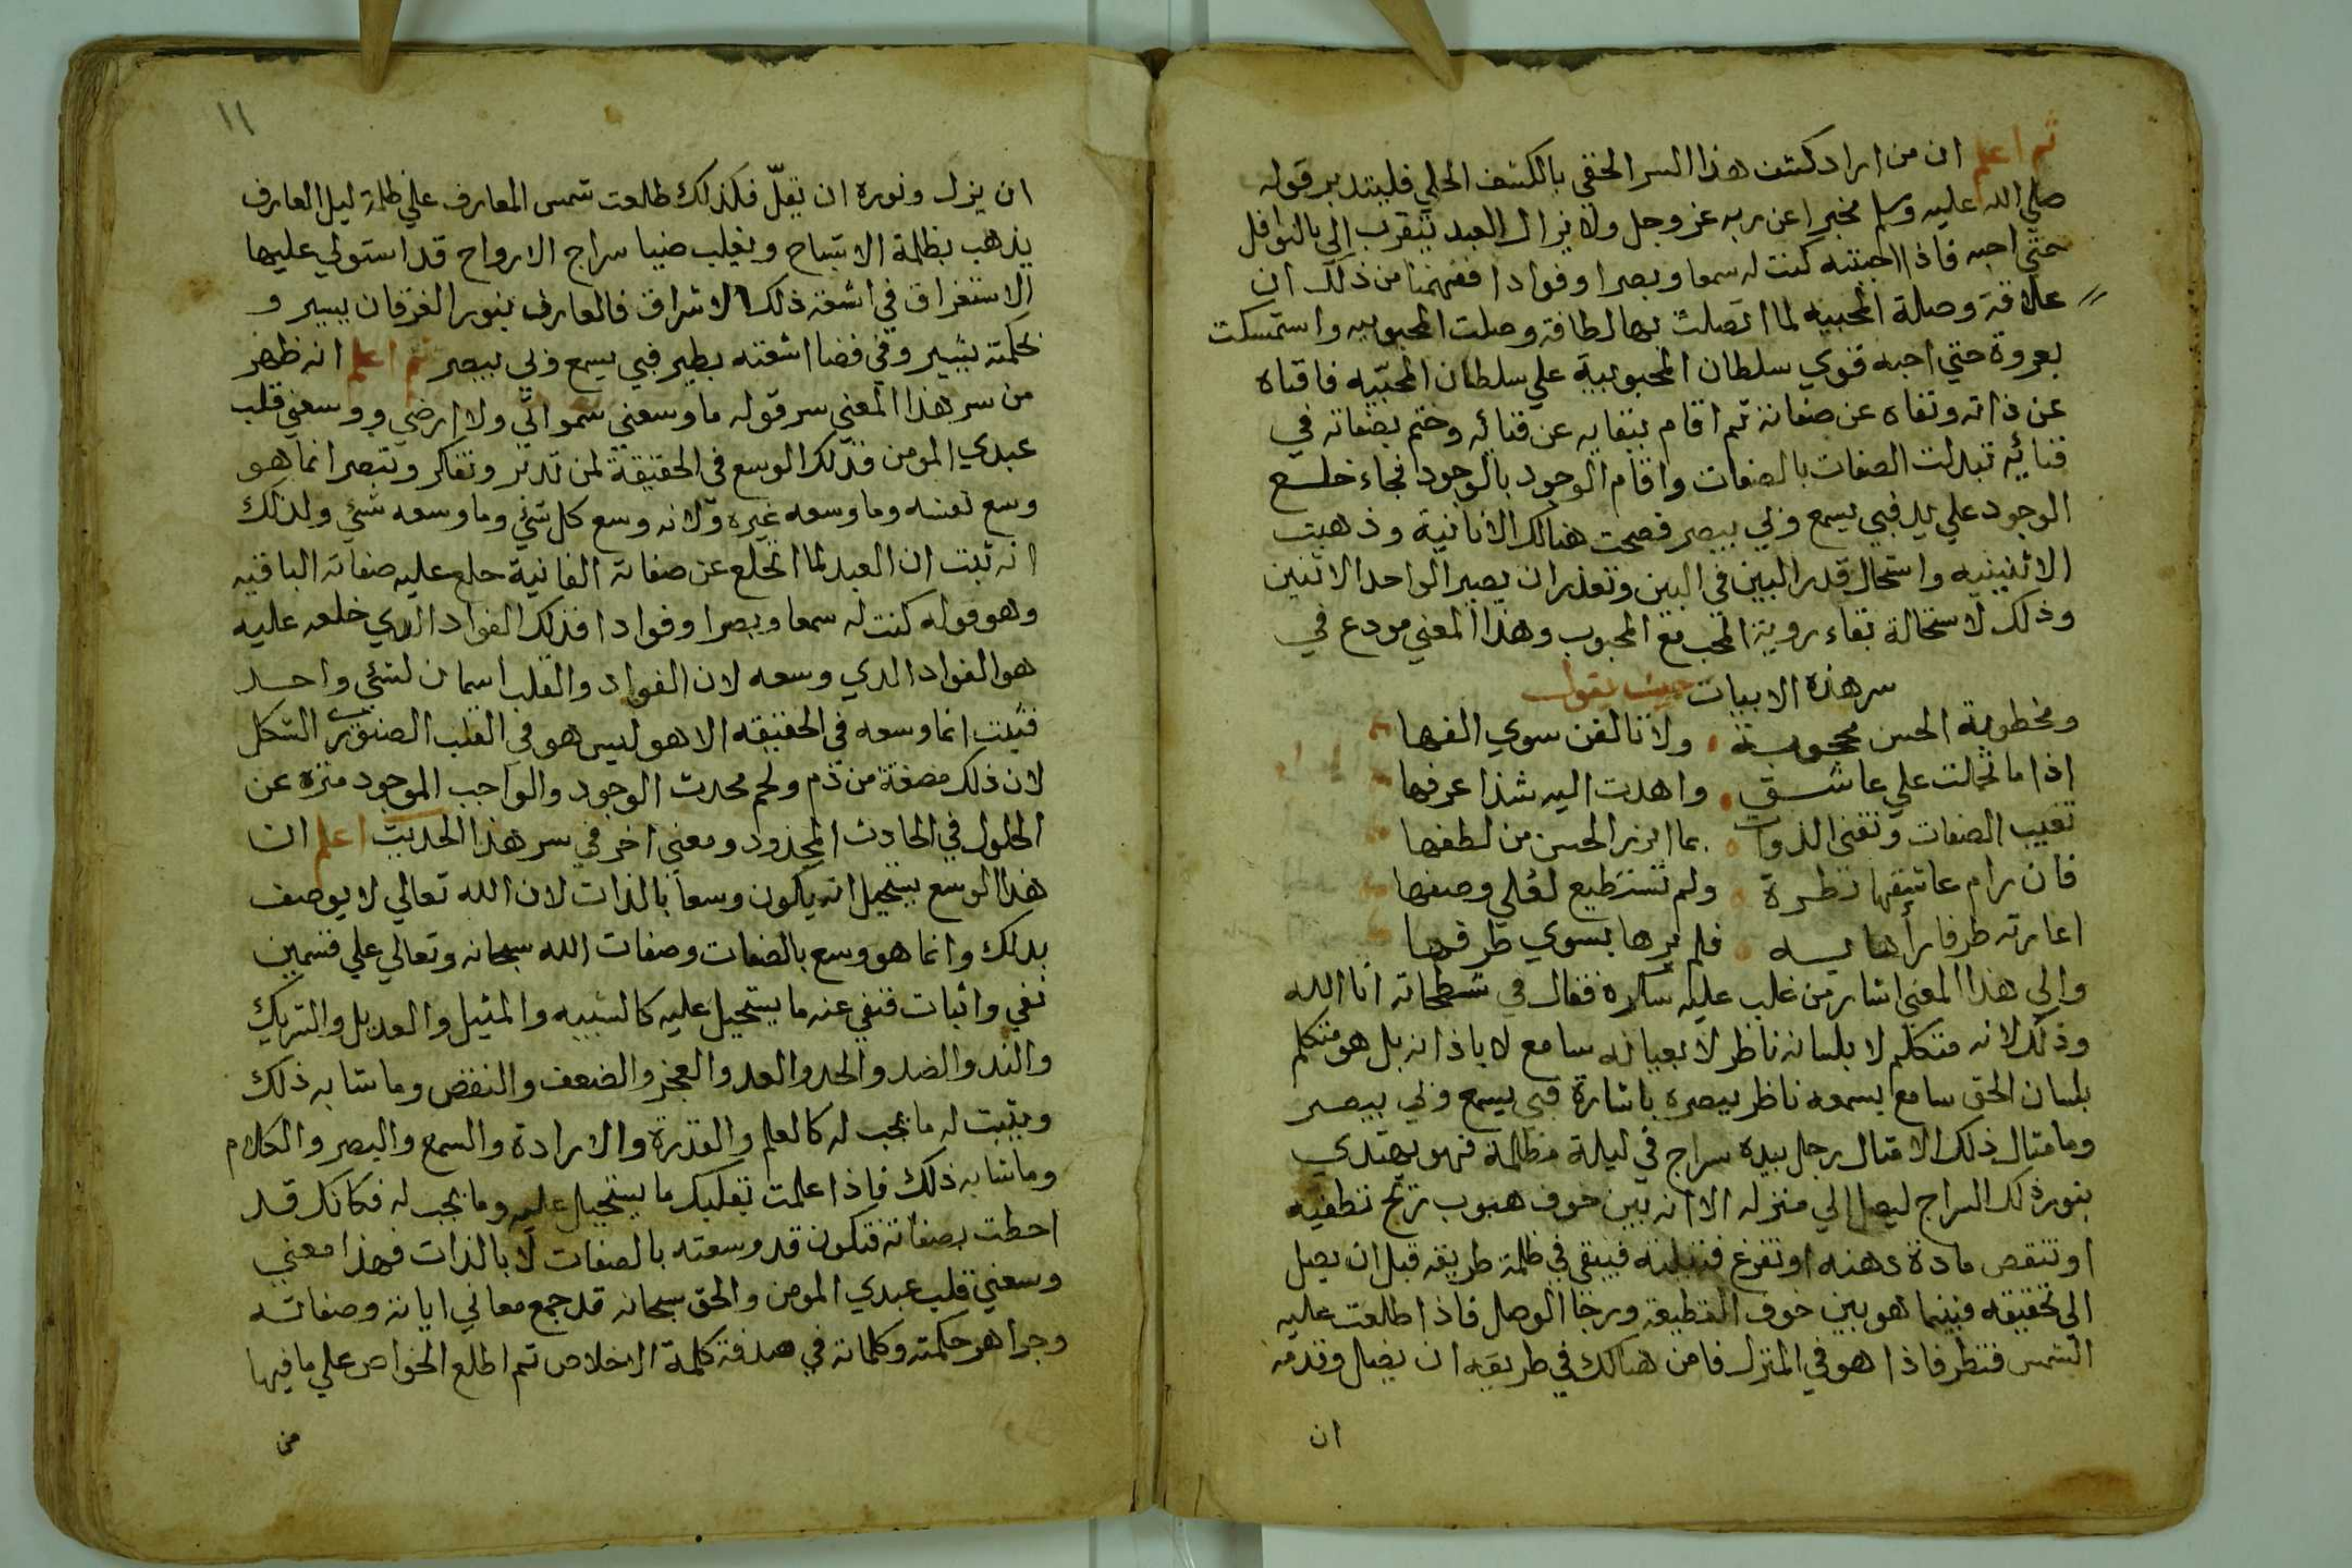 ثم اعلم ان من اراد كشف هذا السر الخفي بالكشف الجلي فليتدبر قوله
صلي الله عليه وسلم مخبرا عن ربه عز وجل ولا يزال العبد يتقرب الي بالنوافل
حتي احبه فاذا احببته كنت له سمعا وبصرا وفوادا ففهمنا من ذلك ان
علاقة وصلة المحبيه لما اتصلت بها لطافة وصلت المحبوبيه واستمسكت
بعروة حتي احبه قوي سلطان المحبوبية علي سلطان المحبّيه فافناه
عن ذاته ونفاه عن صفاته ثم اقام ببقايه عن فنائه وختم بصفاته في
فنائه تبدلت الصفات بالصفات واقام الوجود بالوجود فجاء خلع
الوجود علي يد فبي يسمع وبي يبصر فصحت هنالك الانانية وذهبت
الاثنينيه واستحال قدر البين في البين وتعذر ان يصير الواحد الاثنين
وذلك لاستحالة بقاء روية المحب مع المحبوب وهذا المعني مودع في
سر هذه الابيات حيث يقول
ومخطوبة الحسن محجوبة ولا نالفن سوي الفها
اذا ما تجلت علي عاشق واهدت اليه شذا عرفها
تغيب الصفات وتفنى الذوات بما ابرز الحسن من لطفها
فان رام عاشقها نظرة ولم تستطيع لعلي وصفها
اعارته طرفا رأها به فلم يرها بسوي طرفها
والي هذا المعني اشار من غلب عليه سكره فقال في شطحاته انا الله
وذلك لانه متكلم لا بلسانه ناظر لا بعيانه سامع لا باذانه بل هو متكلم
بلسان الحق سامع بسمعه ناظر ببصره باشارة فبي يسمع وبي يبصر
وما مثال ذلك الا مثال رجل بيده سراج في ليلة مظلمة فهو يهتدي
بنور ذلك السراج ليصل الي منزله الا انه بين خوف هبوب ريح تطفيه
او تنقص مادة دهنه او تفرغ فتيلته فيبقي في ظلمة طريقه قبل ان يصل
الي تحقيقه فبينما هو بين خوف القطيعة ورجا الوصل فاذا طلعت عليه
الشمس فنظر فاذا هو في المنزل فامن هنالك في طريقه ان يضل وقدمه
ان
١١
ان يزل ونوره ان يقلّ فكذلك طلعت شمس المعارف علي ظلمة ليل العارف
يذهب بظلمة الاشباح ويغلب ضيا سراج الارواح قد استولي عليها
الاستغراق في اشعة ذلك الاشراق فالعارف بنور الفرقان يسير و
بحكمته يشير وفي فضا اشعته يطير فبي يسمع وبي يبصر ثم اعلم انه ظهر
من سر هذا المعني سر قوله ما وسعني سمواتي ولا ارضي ووسعني قلب
عبدي المومن فذلك الوسع في الحقيقة لمن تدبر وتفاكر وتبصر انما هو
وسع نفسه وما وسعه غيره ولانه وسع كل شئي وما وسعه شئي ولذلك
انه ثبت ان العبد لما انخلع عن صفاته الفانية خلع عليه صفاته الباقيه
وهو قوله كنت له سمعا وبصرا وفوادا فذلك الفواد الدي خلعه عليه
هو الفواد الدي وسعه لان الفواد والقلب اسمان لشئي واحد
فثبت انما وسعه في الحقيقه الا هو ليس هو في القلب الصنوبري الشكل
لان ذلك مضغة من دم ولحم محدث الوجود والواجب الموجود منزه عن
الحلول في الحادث المحدود ومعني اخر في سر هذا الحديث اعلم ان
هذا الوسع يستحيل انه يكون وسعا بالذات لان الله تعالي لا يوصف
بدلك وانما هو وسع بالصفات وصفات الله سبحانه وتعالي علي قسمين
نفي واثبات فنفي عنه ما يستحيل عليه كالشبيه والمثيل والعديل والشريك
والند والضد والحد والعد والعجز والضعف والنقص وما شابه ذلك
ويثبت له ما يجب له كالعلم والقدرة والارادة والسمع والبصر والكلام
وما شابه ذلك فاذا علمت بقلبك ما يستحيل عليه وما يجب له فكانك قد
احطت بصفاته فتكون قد وسعته بالصفات لا بالذات فهذا معني
وسعني قلب عبدي المومن والحق سبحانه قد جمع معاني اياته وصفاته
وجواهر حكمته وكلماته في صدفة كلمة الاخلاص ثم اطلع الخواص علي ما فيها
من